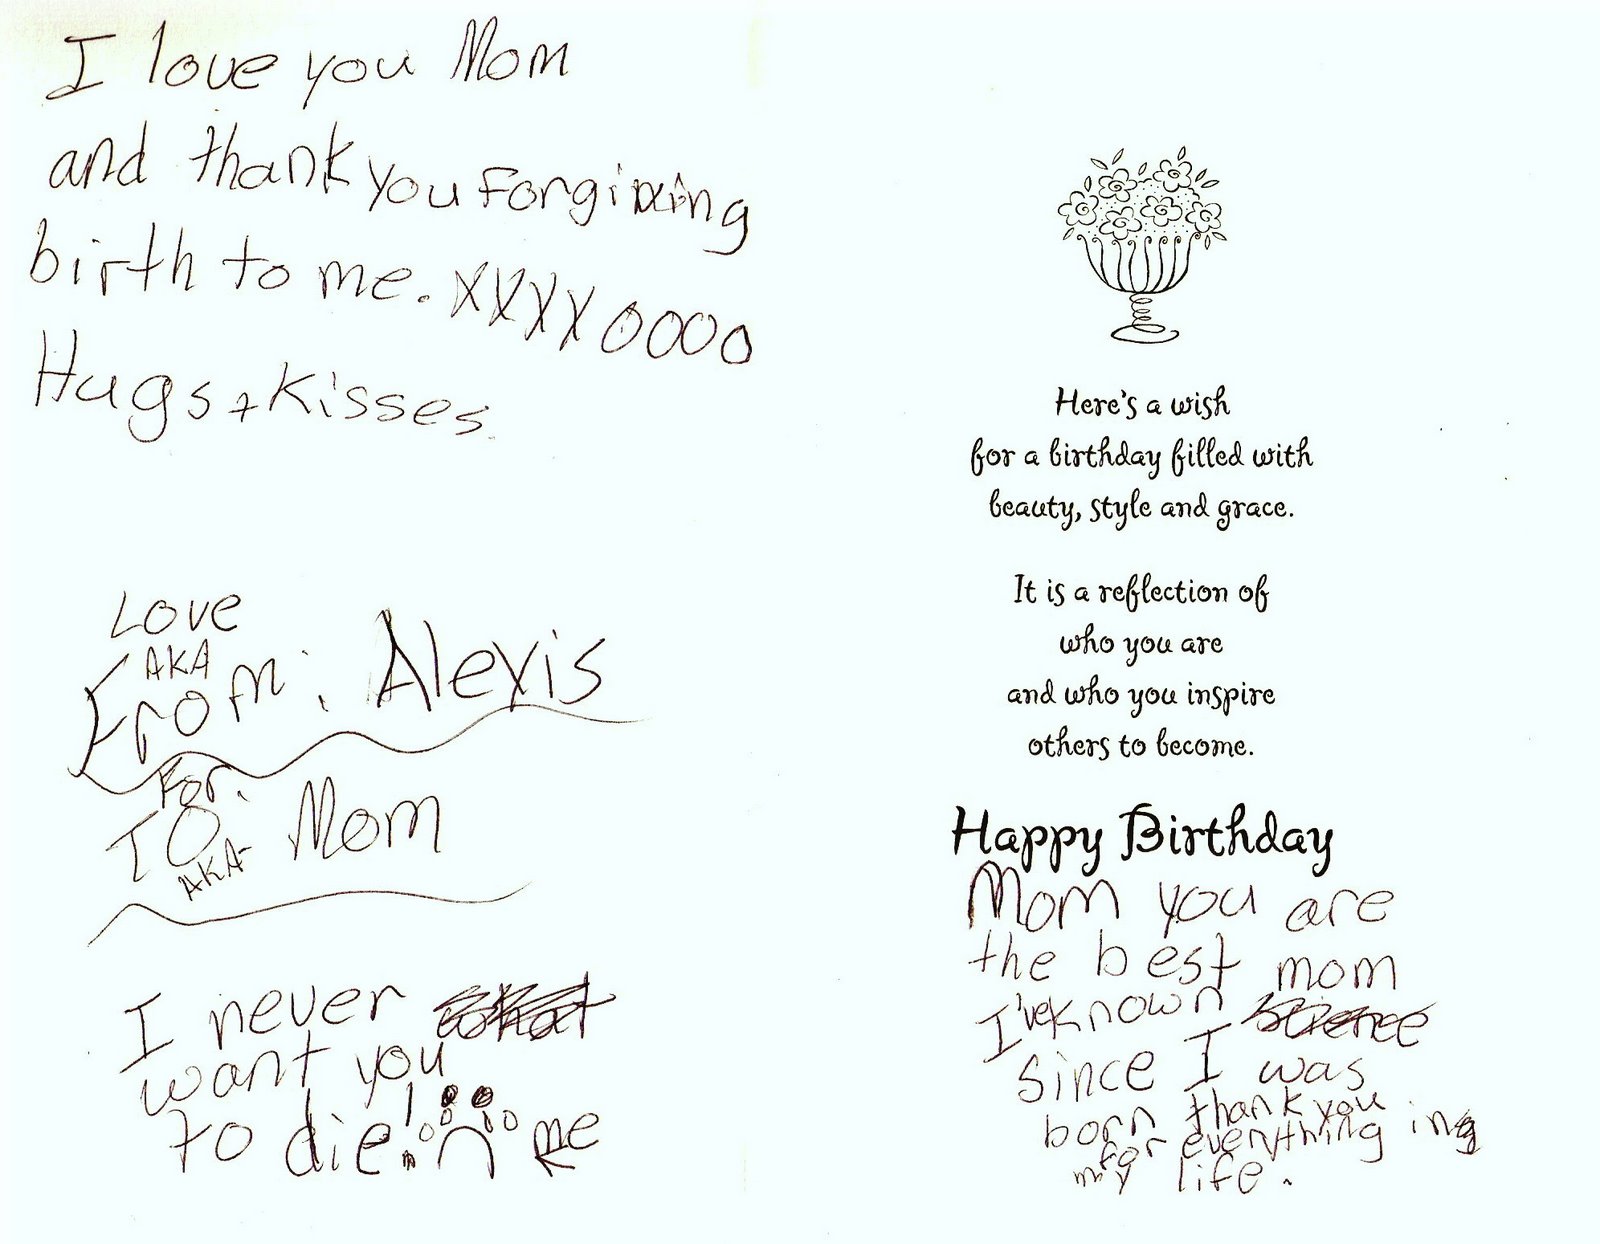 I love you Mom
and thank you for giving
birth to me. XXXX OOOO
Hugs + Kisses.
Love
AKA
From: Alexis
For:
TO Mom
AKA-
I never what
want you
to die! me
Here's a wish
for a birthday filled with
beauty, style and grace.
It is a reflection of
who you are
and who you inspire
others to become.
Happy Birthday
Mom you are
the best mom
I've known
since I was
born thank you
for everything ing
my life.